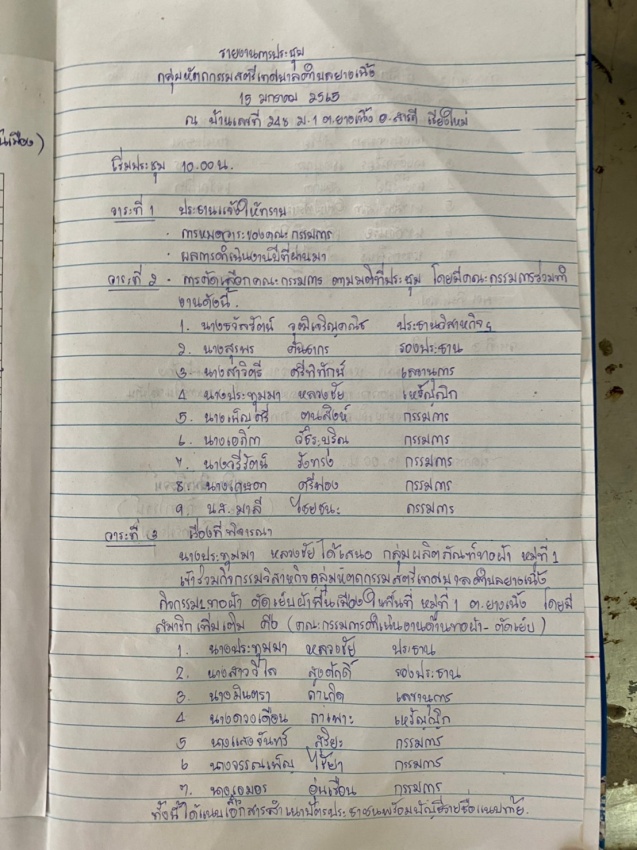 นเมือง)
รายงานการประชุม
กลุ่มหัตถกรรมสตรีเทศบาลตำบลยางเนิ้ง
15 มกราคม 2565
ณ บ้านเลขที่ 248 ม.1 ต.ยางเนิ้ง อ.สารภี เชียงใหม่
เริ่มประชุม 10.00 น.
วาระที่ 1 ประธานแจ้งให้ทราบ
- การหมดวาระของคณะกรรมการ
- ผลการดำเนินงานปีที่ผ่านมา
วาระที่ 2 - การคัดเลือกคณะกรรมการ ตามมติที่ประชุม โดยมีคณะกรรมการร่วมทำ
งานดังนี้.
1. นางธวัลรัตน์ ประธานวิสาหกิจฯ
2. นางสุรพร คันธากร รองประธาน
3. นางสาวิตรี ศรีพิทักษ์ เลขานุการ
4 นางประทุมมา หลวงชัย เหรัญญิก
5. นางเพ็ญศรี ตนสิงห์ กรรมการ
6. กรรมการ
7. นางวรีรัตน์ รังทรง กรรมการ
8. ศรีผ่อง กรรมการ
9. น.ส.มาลี ไชยชนะ กรรมการ
วาระที่ 3 เรื่องที่พิจารณา
นางประทุมมา หลวงชัย ได้เสนอ กลุ่มผลิตภัณฑ์ทอผ้า หมู่ที่ 1
เข้าร่วมกิจกรรมวิสาหกิจกลุ่มหัตถกรรมสตรีเทศบาลตำบลยางเนิ้ง
กิจกรรมทอผ้า ตัดเย็บผ้าพื้นเมืองในพื้นที่ หมู่ที่ 1 ต.ยางเนิ้ง โดยมี
สมาชิกเพิ่มเติม คือ (คณะกรรมการดำเนินงานด้านทอผ้า - ตัดเย็บ)
1. นางประทุมมา หลวงชัย ประธาน
2. นางสาววิไล สูงศักดิ์ รองประธาน
3. นางมินตรา คำเกิด เลขานุการ
4 นางดวงเดือน กาเผาะ เหรัญญิก
5 นางแสงจันทร์ สุริยะ กรรมการ
6 นางจรรณเพ็ญ ไชยา กรรมการ
7. นางเอมอร อุ่นเรือน กรรมการ
ทั้งนี้ได้แนบเอกสารสำเนาบัตรประชาชนพร้อมบัญชีรายชื่อแนบท้าย.